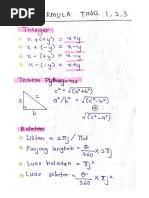 FORMULA TING. 1,2,3
Integer
x + (+y) = x+y
x + (-y) = x-y
x - (+y) = x-y
x - (-y) = x+y
Teorem Pythagoras
c² = √(a²+b²)
a²/b² = √(c²-b²)
a c
b
√(c²-a²)
Bulatan
Lilitan = 2πj / πd
Panjang lengkok = θ/360 × 2πj
Luas bulatan = πj²
Luas sektor = θ/360 × πj²